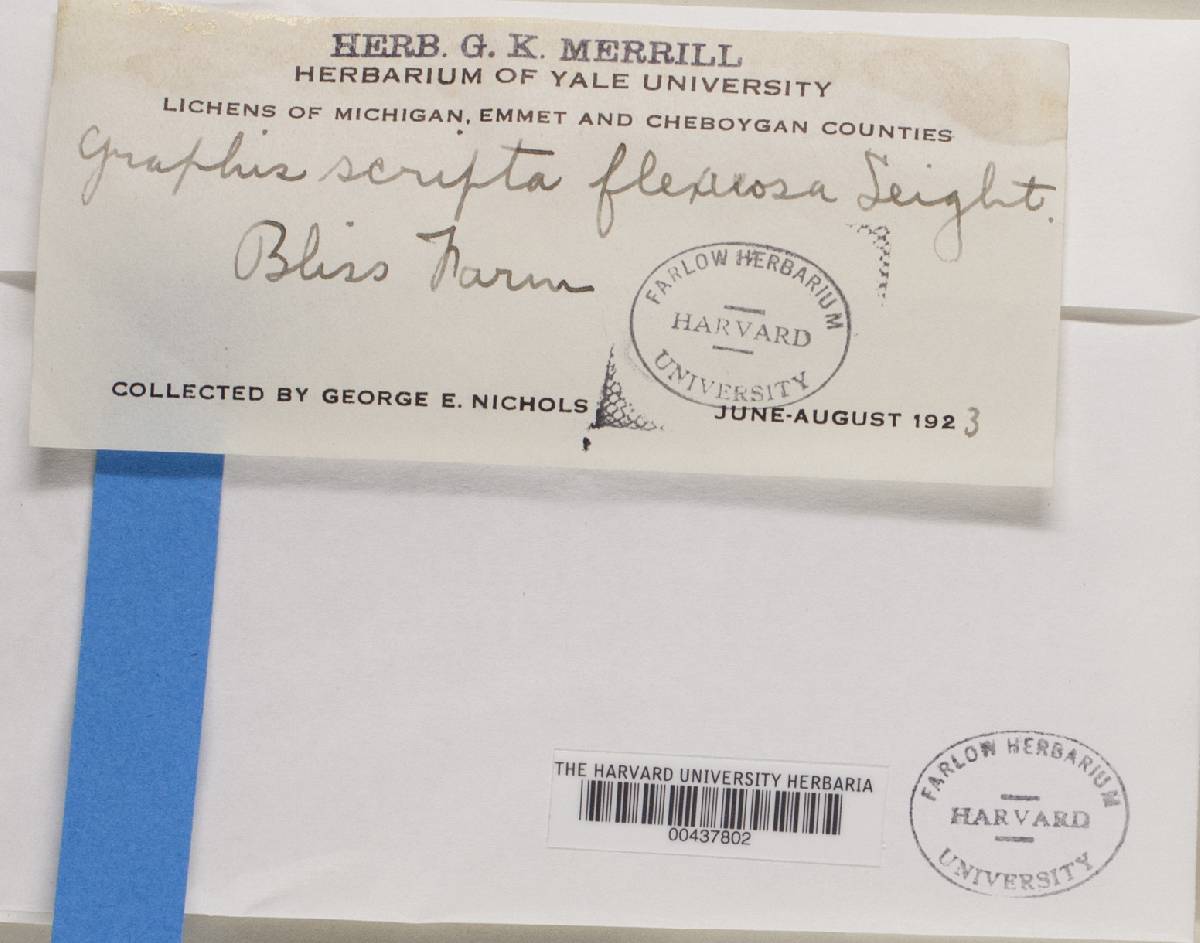 HERB. G. K. MERRILL
HERBARIUM OF YALE UNIVERSITY
LICHENS OF MICHIGAN, EMMET AND CHEBOYGAN COUNTIES
Graphis scripta flexuosa Leight.
Bliss Farm
FARLOW HERBARIUM
HARVARD
UNIVERSITY
COLLECTED BY GEORGE E. NICHOLS
JUNE-AUGUST 1923
THE HARVARD UNIVERSITY HERBARIA
00437802
FARLOW HERBARIUM
HARVARD
UNIVERSITY